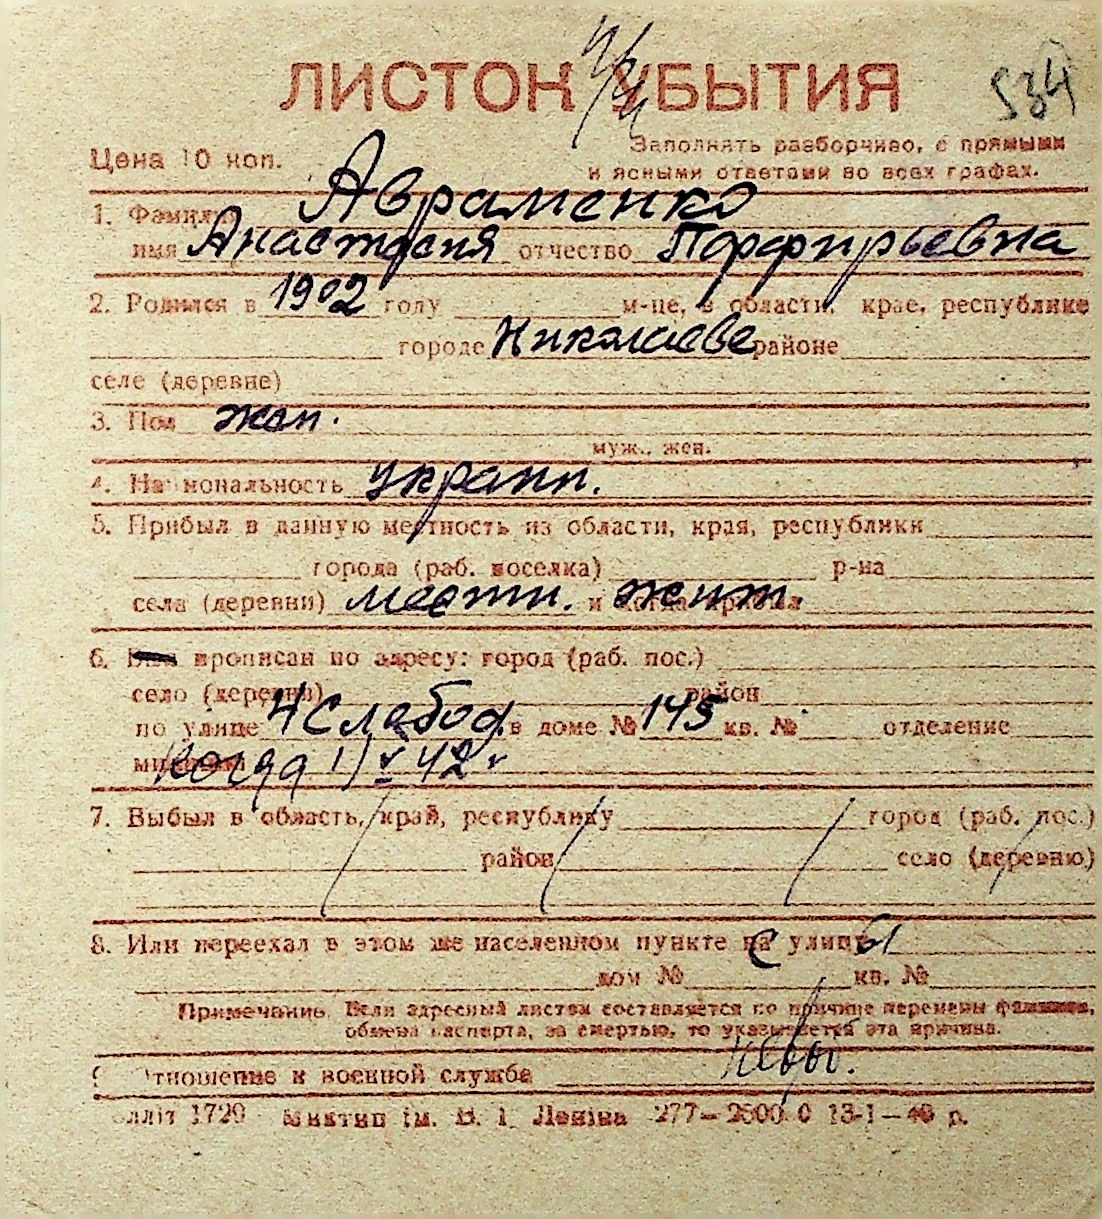 ЛИСТОК УБЫТИЯ
534
Цена 10 коп.
Заполнять разборчиво, с прямыми
и ясными ответами во всех графах.
1. Фамилия Авраменко
имя Анастасия отчество Порфирьевна
2. Родился в 1902 году м-це, в области, крае, республике
городе Николаеве районе
селе (деревне)
3. Пол жен.
муж., жен.
4. Национальность украин.
5. Прибыл в данную местность из области, края, республики
города (раб. поселка) р-на
села (деревни) местн. и когда прибыл жит.
6. Был прописан по адресу: город (раб. пос.)
село (деревня) район
по улице 4 Слобод. в доме № 145 кв. № отделение
милиции Когда 1) V 42
7. Выбыл в область, край, республику город (раб. пос.)
район село (деревню)
8. Или переехал в этом же населенном пункте на улицу
дом № кв. №
Примечание. Если адресный листок составляется по причине перемены фамилии,
обмена паспорта, за смертью, то указывается эта причина.
9. Отношение к военной службе
1720 ім. В. І. Леніна 277— 13-1—40 р.